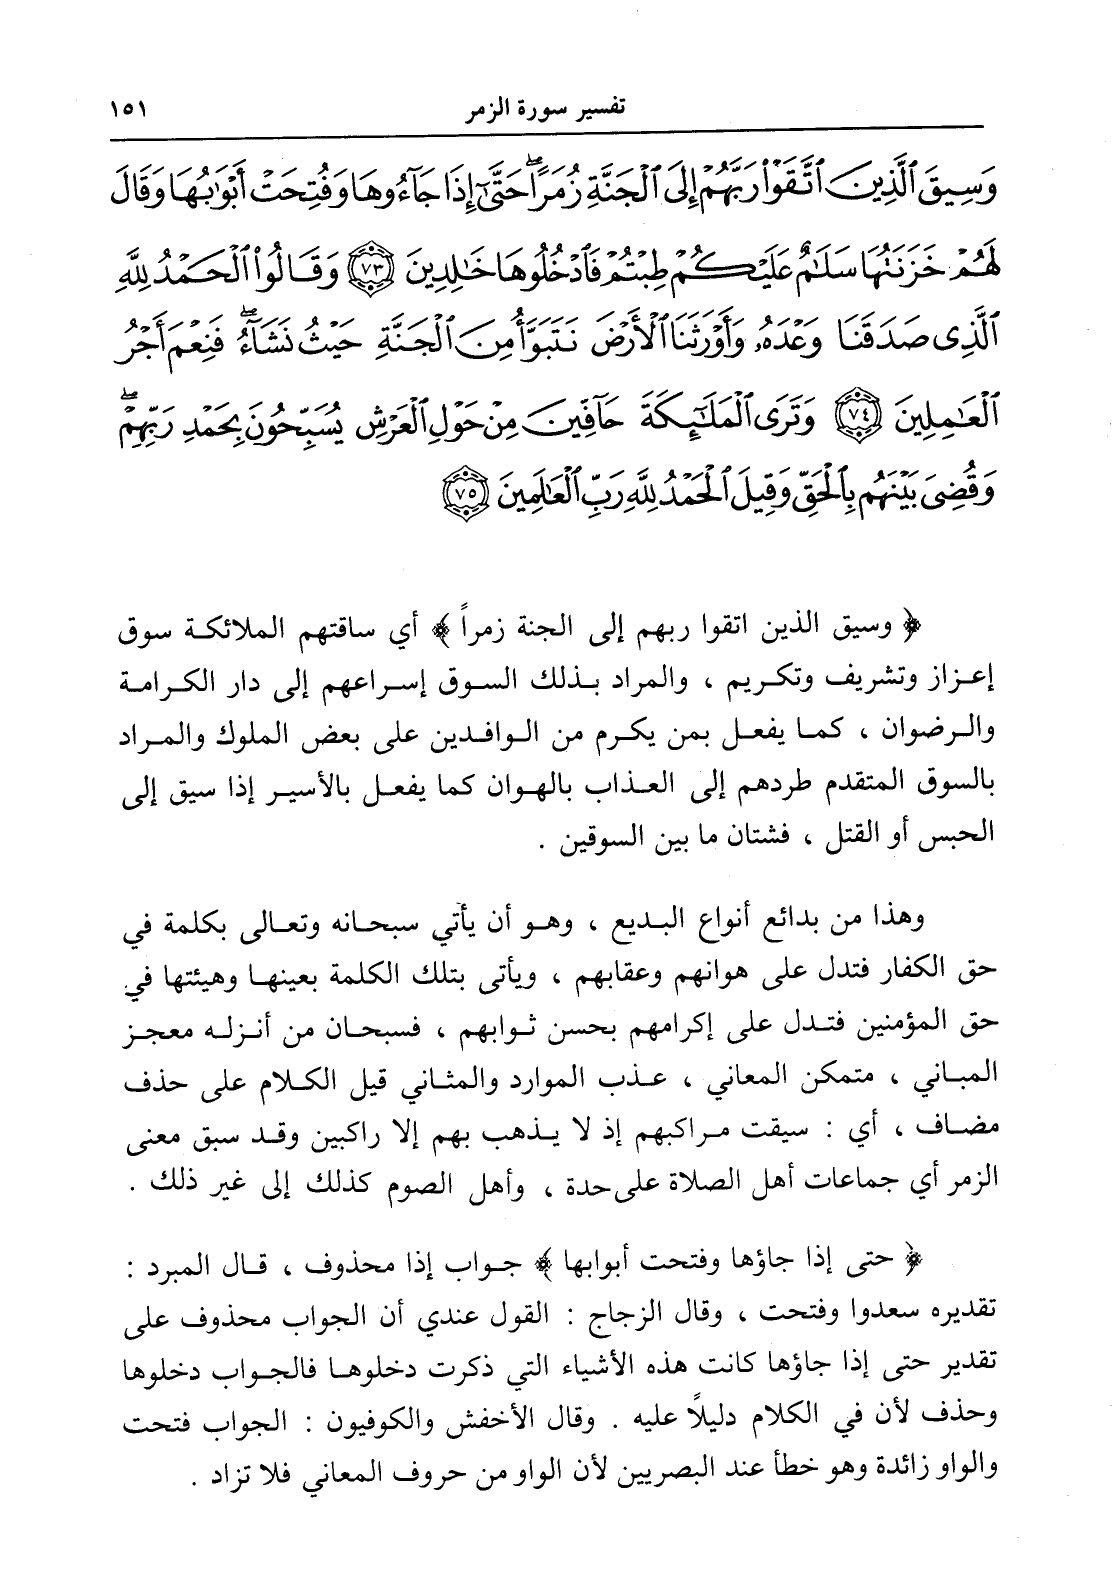 تفسير سورة الزمر ١٥١
وَسِيقَ ٱلَّذِينَ ٱتَّقَوْا۟ رَبَّهُمْ إِلَى ٱلْجَنَّةِ زُمَرًا ۖ حَتَّىٰٓ إِذَا جَآءُوهَا وَفُتِحَتْ أَبْوَٰبُهَا وَقَالَ
لَهُمْ خَزَنَتُهَا سَلَٰمٌ عَلَيْكُمْ طِبْتُمْ فَٱدْخُلُوهَا خَٰلِدِينَ ﴿٧٣﴾ وَقَالُوا۟ ٱلْحَمْدُ لِلَّهِ
ٱلَّذِى صَدَقَنَا وَعْدَهُۥ وَأَوْرَثَنَا ٱلْأَرْضَ نَتَبَوَّأُ مِنَ ٱلْجَنَّةِ حَيْثُ نَشَآءُ ۖ فَنِعْمَ أَجْرُ
ٱلْعَٰمِلِينَ ﴿٧٤﴾ وَتَرَى ٱلْمَلَٰٓئِكَةَ حَآفِّينَ مِنْ حَوْلِ ٱلْعَرْشِ يُسَبِّحُونَ بِحَمْدِ رَبِّهِمْ ۖ
وَقُضِىَ بَيْنَهُم بِٱلْحَقِّ وَقِيلَ ٱلْحَمْدُ لِلَّهِ رَبِّ ٱلْعَٰلَمِينَ ﴿٧٥﴾
﴿ وسيق الذين اتقوا ربهم إلى الجنة زمراً ﴾ أي ساقتهم الملائكة سوق
إعزاز وتشريف وتكريم ، والمراد بذلك السوق إسراعهم إلى دار الكرامة
والرضوان ، كما يفعل بمن يكرم من الوافدين على بعض الملوك والمراد
بالسوق المتقدم طردهم إلى العذاب بالهوان كما يفعل بالأسير إذا سيق إلى
الحبس أو القتل ، فشتان ما بين السوقين .
وهذا من بدائع أنواع البديع ، وهو أن يأتي سبحانه وتعالى بكلمة في
حق الكفار فتدل على هوانهم وعقابهم ، ويأتى بتلك الكلمة بعينها وهيئتها في
حق المؤمنين فتدل على إكرامهم بحسن ثوابهم ، فسبحان من أنزله معجز
المباني ، متمكن المعاني ، عذب الموارد والمثاني قيل الكلام على حذف
مضاف ، أي : سيقت مراكبهم إذ لا يذهب بهم إلا راكبين وقد سبق معنى
الزمر أي جماعات أهل الصلاة على حدة ، وأهل الصوم كذلك إلى غير ذلك .
﴿ حتى إذا جاؤها وفتحت أبوابها ﴾ جواب إذا محذوف ، قال المبرد :
تقديره سعدوا وفتحت ، وقال الزجاج : القول عندي أن الجواب محذوف على
تقدير حتى إذا جاؤها كانت هذه الأشياء التي ذكرت دخلوها فالجواب دخلوها
وحذف لأن في الكلام دليلاً عليه . وقال الأخفش والكوفيون : الجواب فتحت
والواو زائدة وهو خطأ عند البصريين لأن الواو من حروف المعاني فلا تزاد .